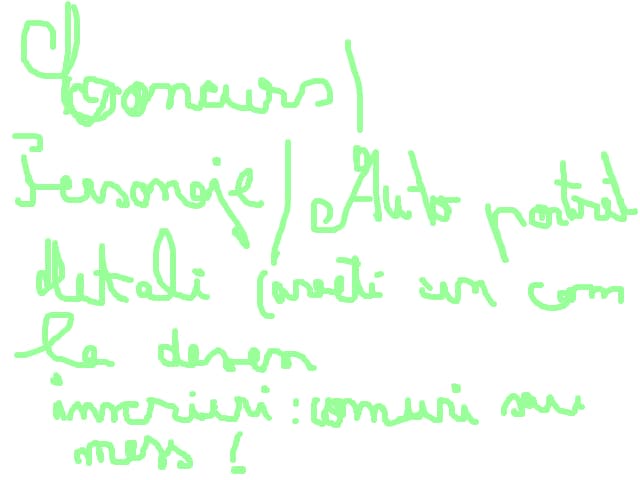 Concurs |
Personaje | Auto portret
detali
la desen
inscrieri : comuri sau
mess !